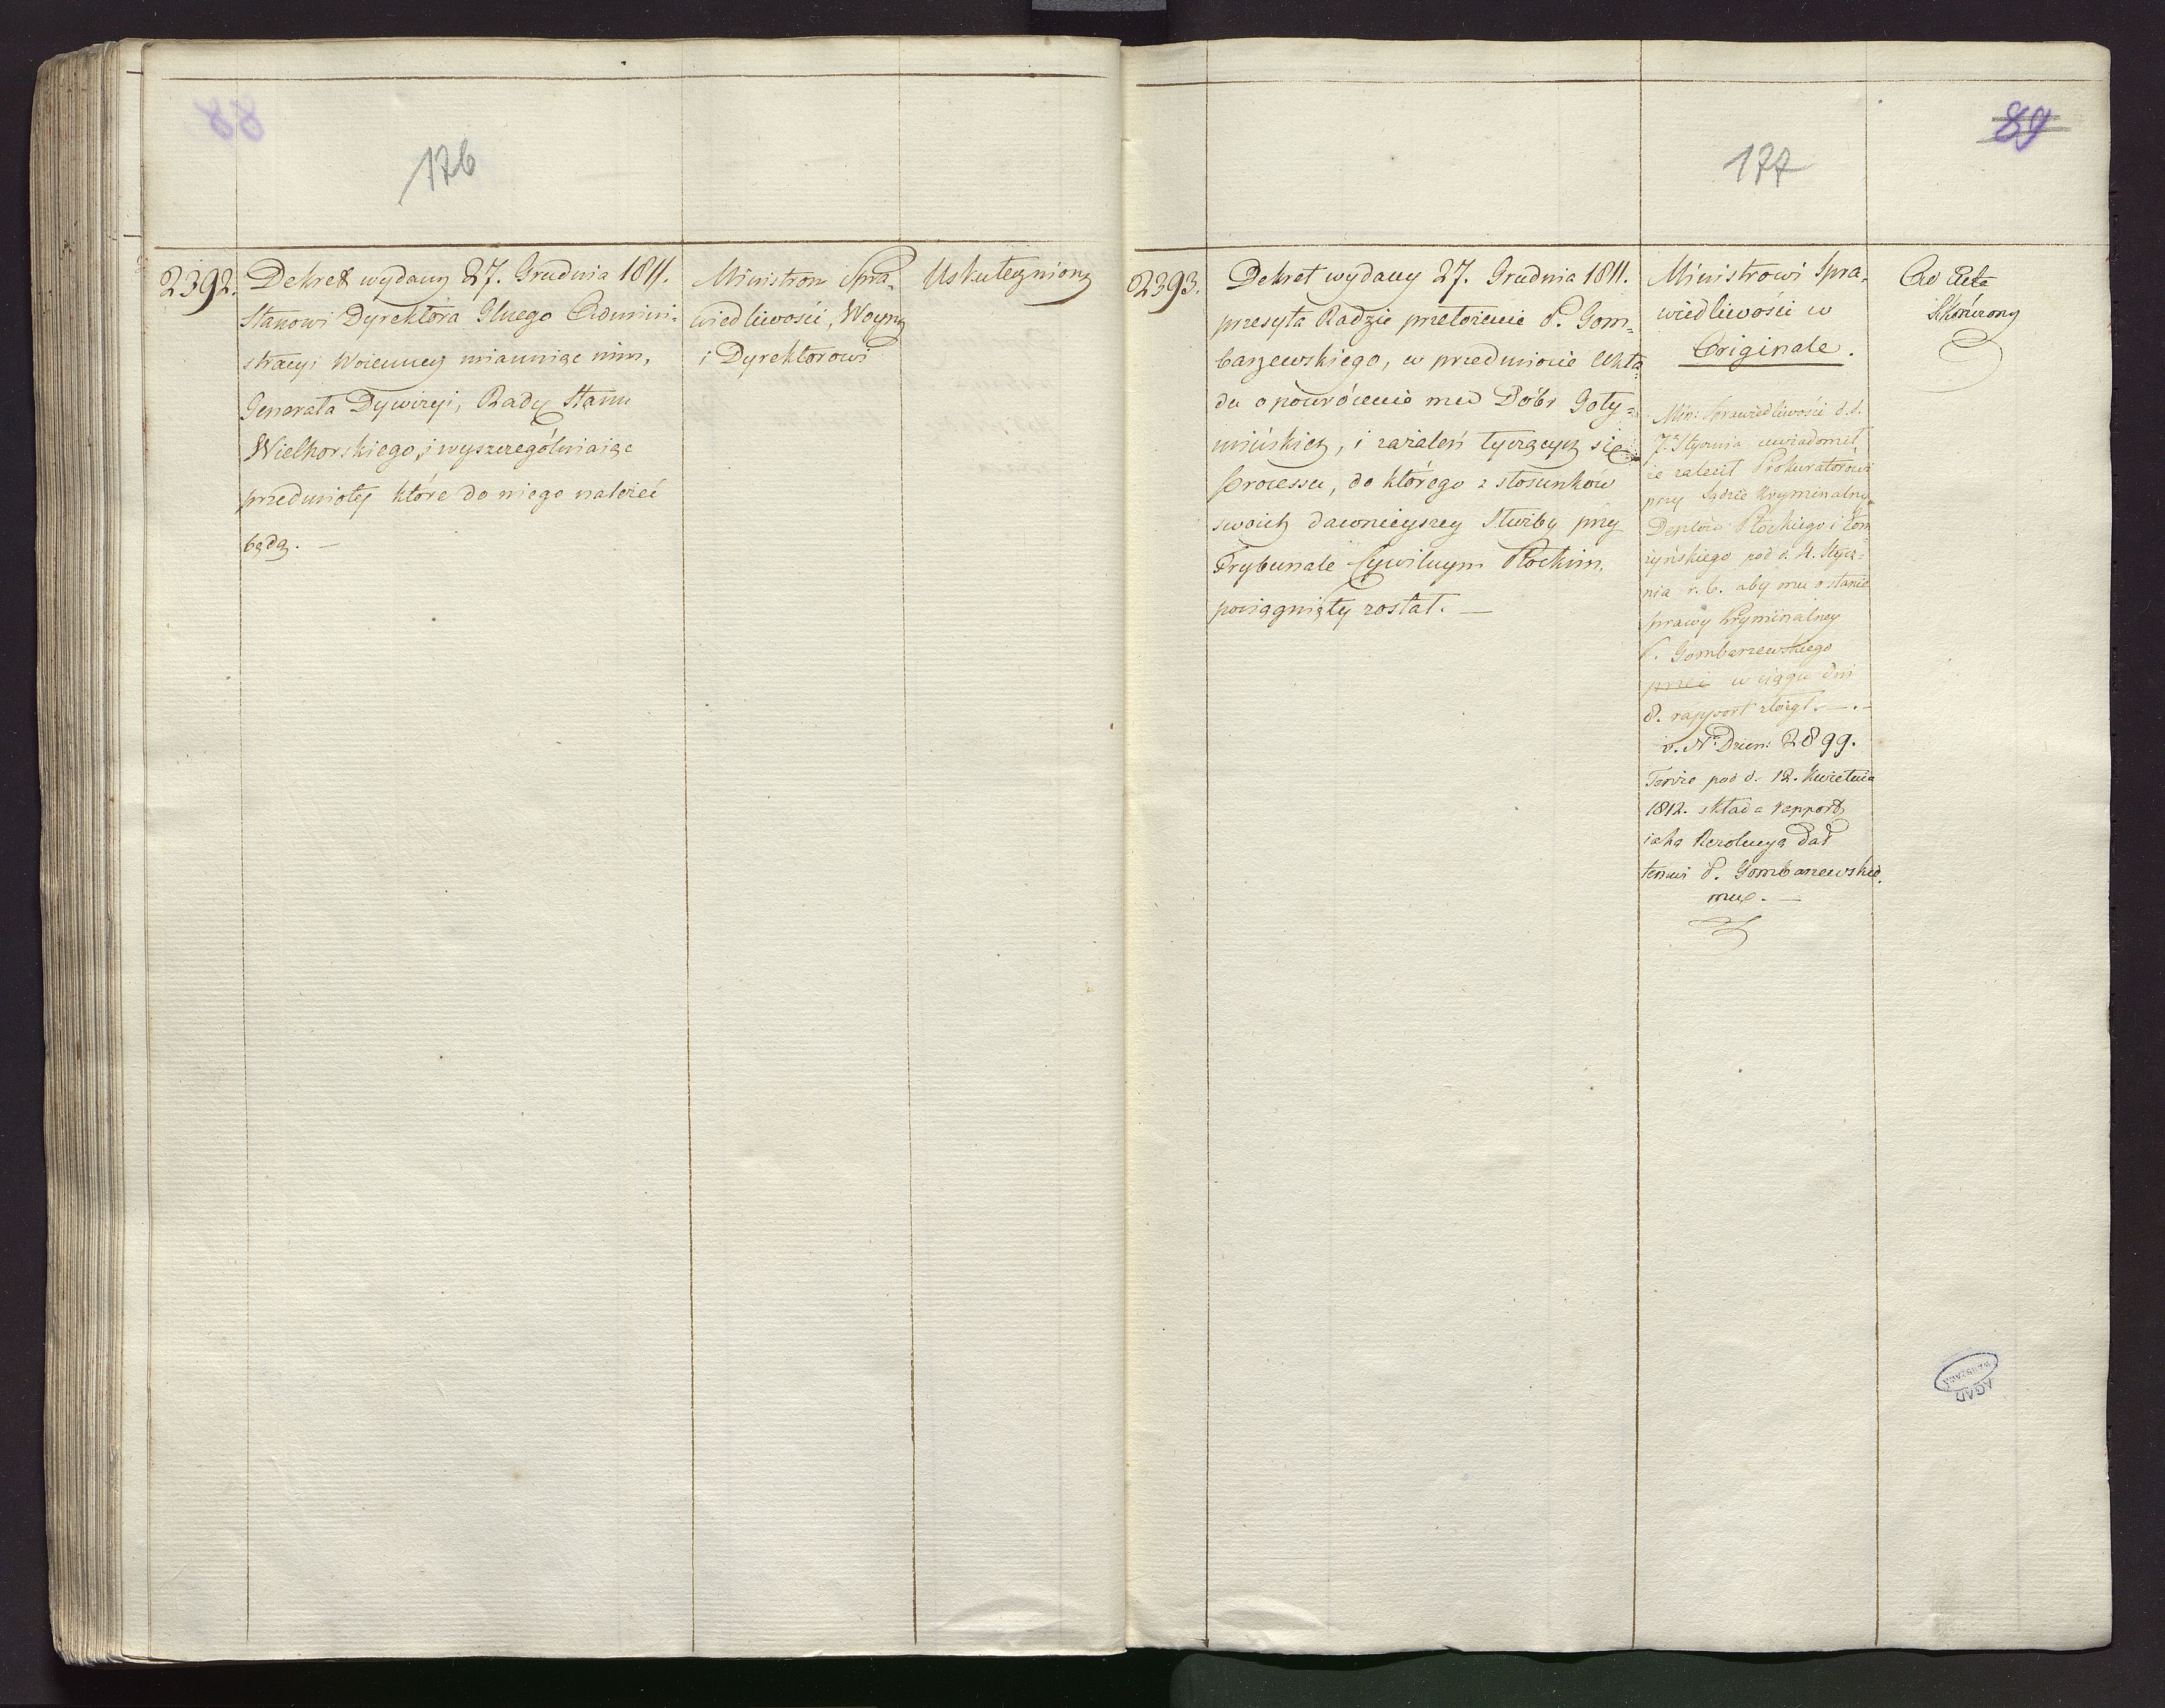 176
2392.
Dekret wydany 27. Grudnia 1811.
Stanowi Dyrektora Głnego Admini-
stracyi Woienney mianuiąc nim,
Generała Dywizyi, Radcę Stanu
Wielhorskiego, i wyszczególniaiąc
przedmioty które do niego należeć
będą. —
Ministrom Spra-
wiedliwości, Woyny
i Dyrektorowi
Uskuteczniony
89
177
2393.
Dekret wydany 27. Grudnia 1811.
przesyła Radzie przełożenie P. Gom-
barzewskiego, w przedmiocie Ukła-
du o powrócenie mu Dóbr Goty-
mińskich, i zażaleń tyczących się
Processu, do którego z stosunków
swoich dawnieyszey Służby przy
Trybunale Cywilnym Płockim,
pociągnięty został. —
Ministrowi Spra-
wiedliwości w
Originale.
Min: Sprawiedliwości d. d.
7. Stycznia uwiadomił
że zalecił Prokuratorowi
przy Sądzie Kryminalnym
Deptów Płockiego i Łom
żyńskiego pod d. 4. Stycz-
nia r. b. aby mu o stanie
sprawy Kryminalney
P. Gombarzewskiego
w ciągu dni
8. rapport złożył. —
v. Nr Dzien: 2899.
Tenże pod d. 12. Kwietnia
1812. składa rapport,
iaką Rezolucyą dał
temuż P. Gombarzewskie-
mu. —
Ad Acta
Skończony
AGAD
WARSZAWA